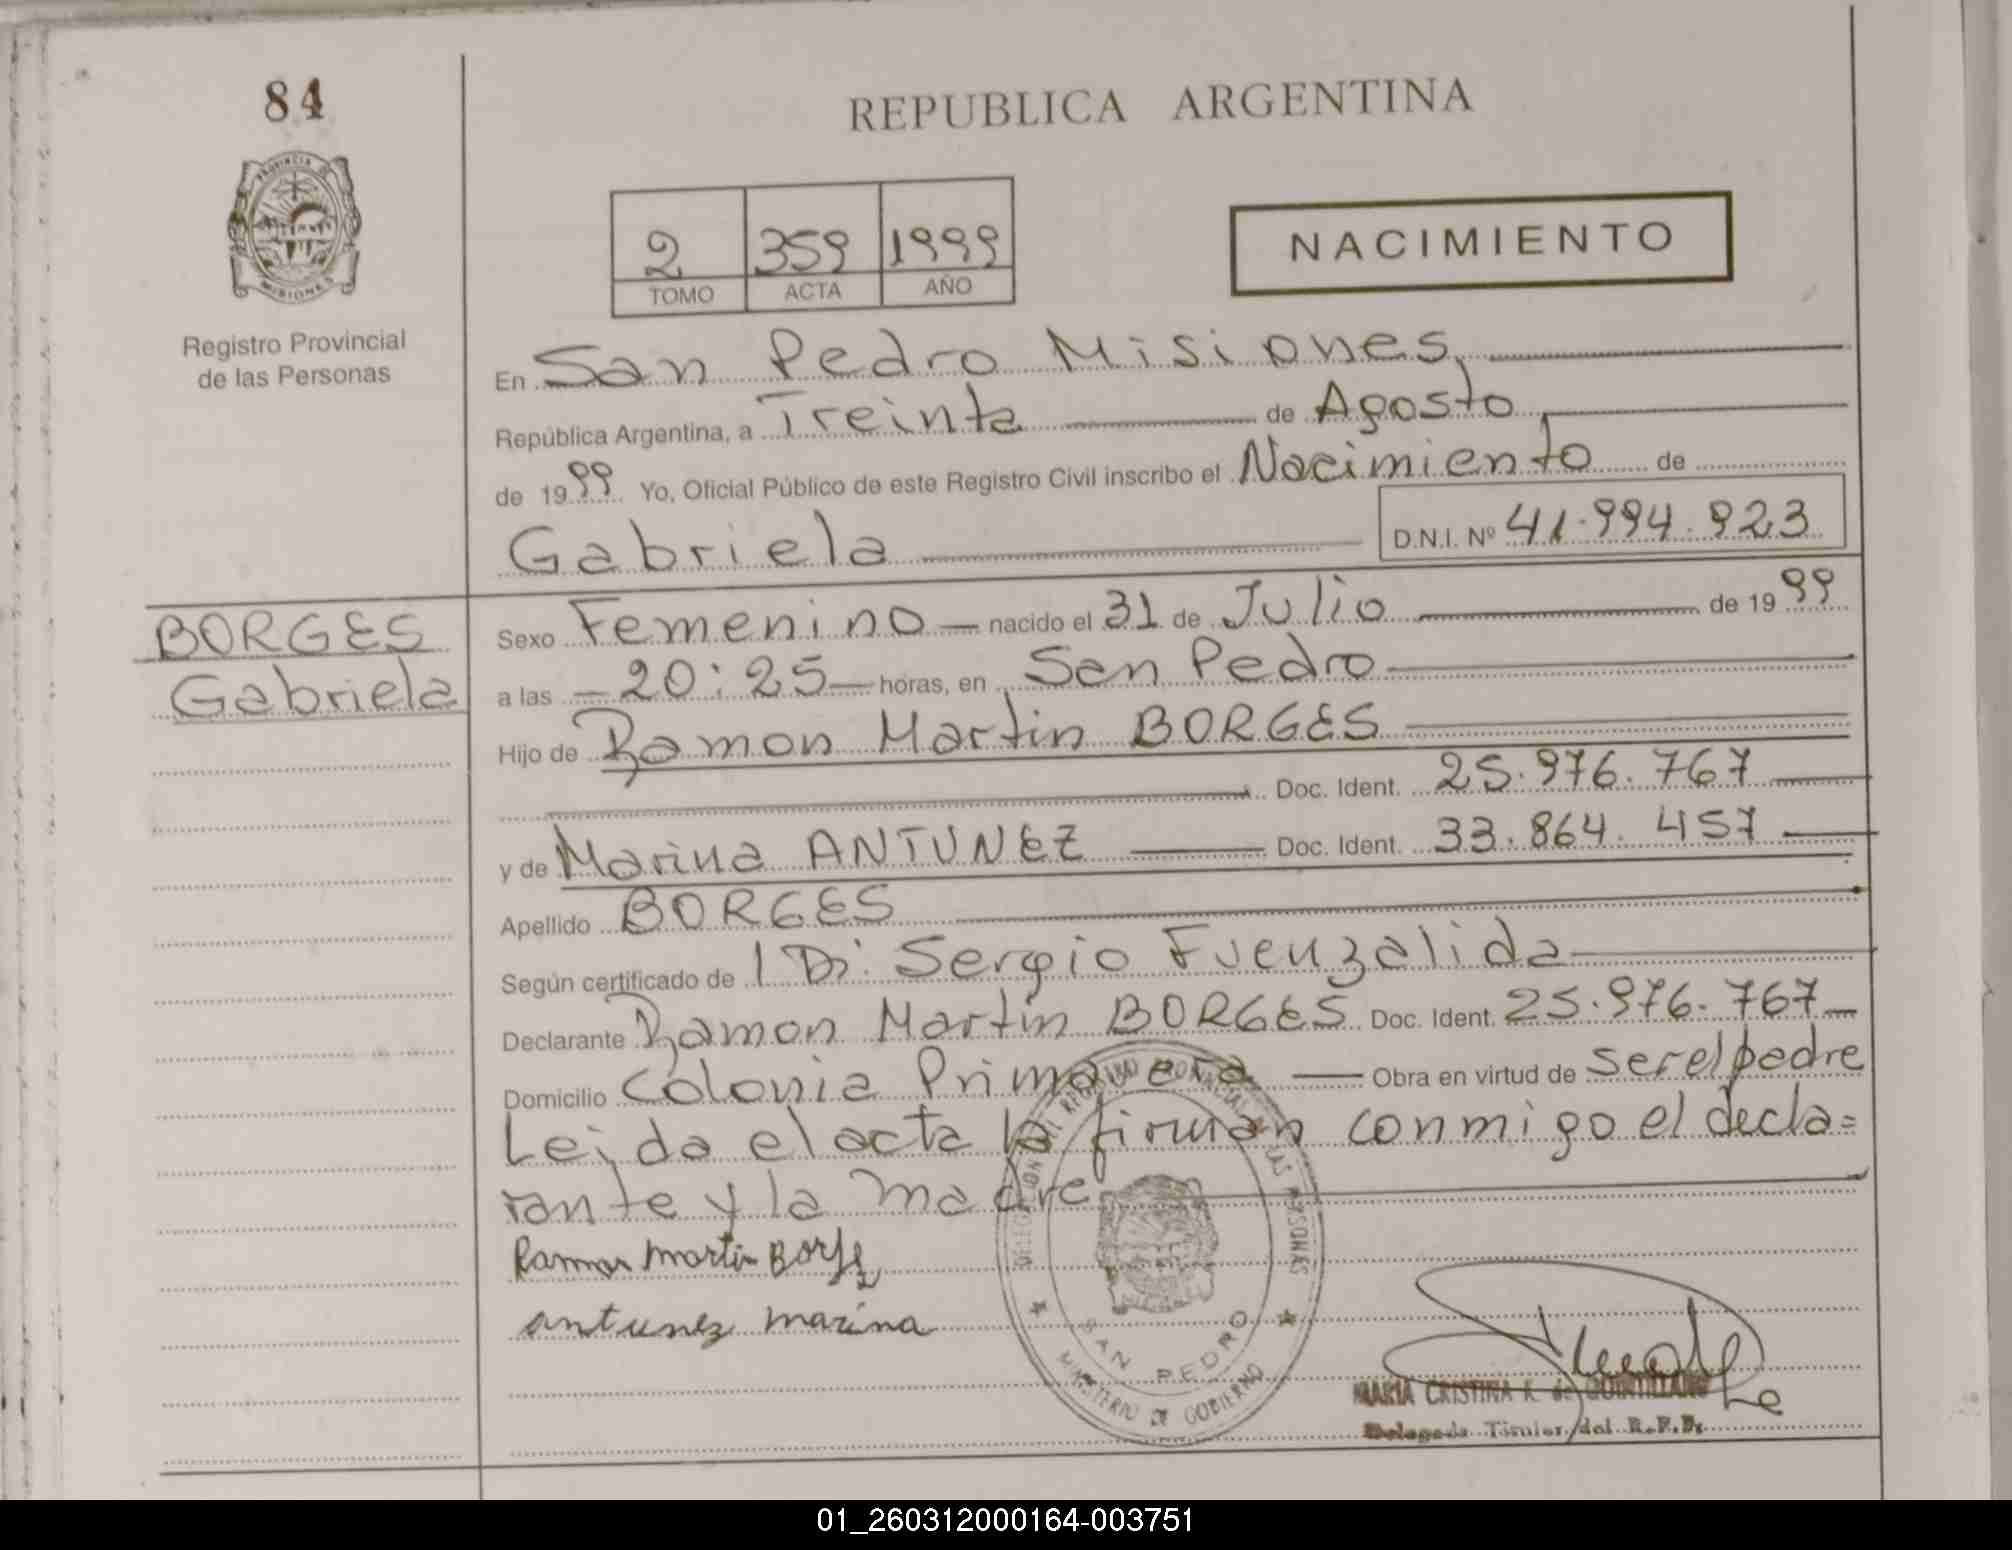 84
PROVINCIA
MISIONES
Registro Provincial
de las Personas
REPUBLICA ARGENTINA
2 359 1999
TOMO ACTA AÑO
NACIMIENTO
En San Pedro Misiones,
República Argentina, a Treinta de Agosto
de 1999 Yo, Oficial Público de este Registro Civil inscribo el Nacimiento de
Gabriela D.N.I. Nº 41.994.923
BORGES
Gabriela
Sexo Femenino — nacido el 31 de Julio de 1999
a las — 20:25 — horas, en San Pedro
Hijo de Ramon Martin BORGES
Doc. Ident. 25.976.767
y de Marina ANTUNEZ Doc. Ident. 33.864.457
Apellido BORGES
Según certificado de Sergio Fuenzalida
Declarante Ramon Martin BORGES Doc. Ident. 25.976.767
Domicilio Colonia Primavera — Obra en virtud de ser el padre
Leida el acta la firman conmigo el decla=
rante y la madre
Ramon Martin Borge
antunez marina
DELEGACION DEL REGISTRO PROVINCIAL DE LAS PERSONAS
SAN PEDRO
MINISTERIO DE GOBIERNO
MARIA CRISTINA K. de
Delegada Titular del R.P.P.
01_260312000164-003751